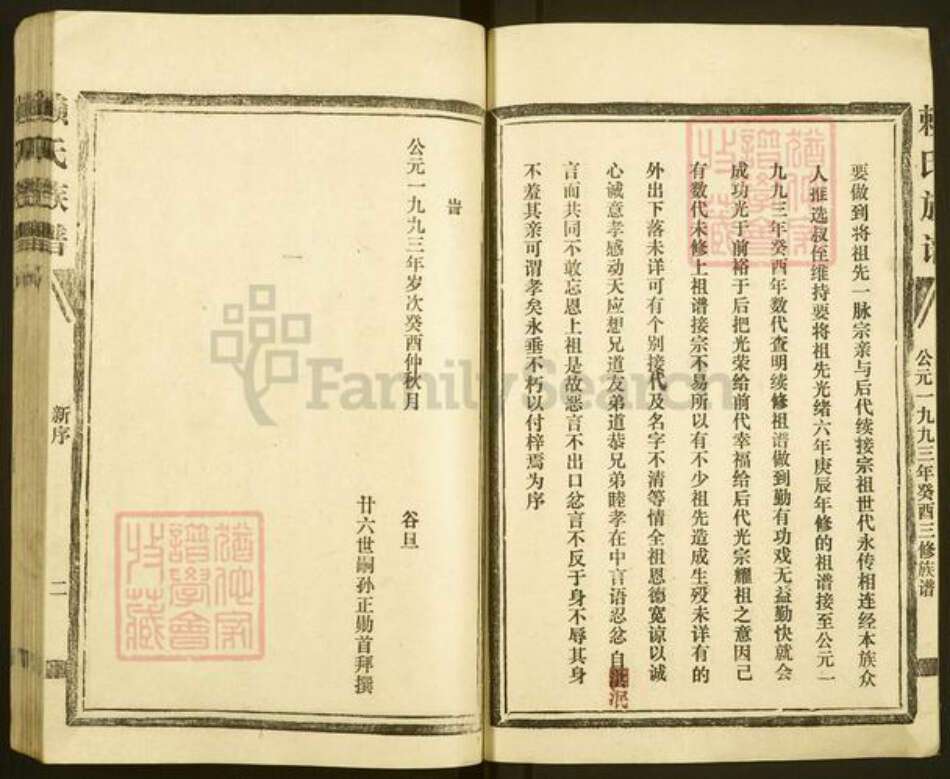 赖氏族谱
公元一九九三年癸酉三修族谱
要做到将祖先一脉宗亲与后代续接宗祖世代永传相连经本族众
人推选叔侄维持要将祖先光绪六年庚辰年修的祖谱接至公元一
九九三年癸酉年数代查明续修祖谱做到勤有功戏无益勤快就会
成功光于前裕于后把光荣给前代幸福给后代光宗耀祖之意因己
有数代未修上祖谱接宗不易所以有不少祖先造成生殁未详有的
外出下落未详可有个别接代及名字不清等情全祖恩德宽谅以诚
心诚意孝感动天应想兄道友弟道恭兄弟睦孝在中言语忍忿自
言而共同不敢忘恩上祖是故恶言不出口忿言不反于身不辱其身
不羞其亲可谓孝矣永垂不朽以付梓焉为序
旹
公元一九九三年岁次癸酉仲秋月
谷旦
廿六世嗣孙正勋首拜撰
赖氏族谱
新序
二
FamilySearch